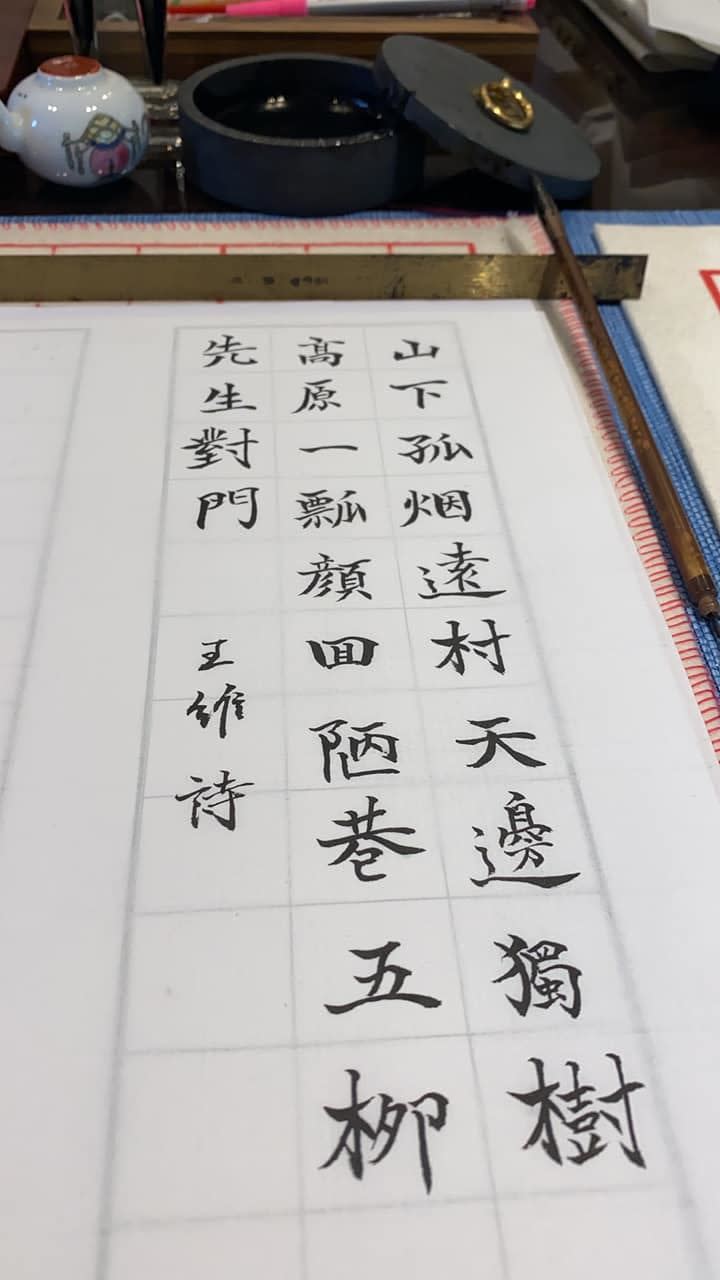 山下孤烟遠村天邊獨樹
高原一瓢顔回陋巷五柳
先生對門 王維詩